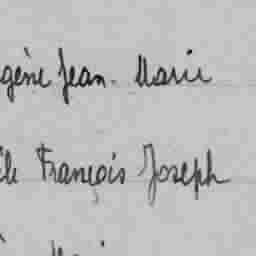 gène Jean. Marie
le François Joseph